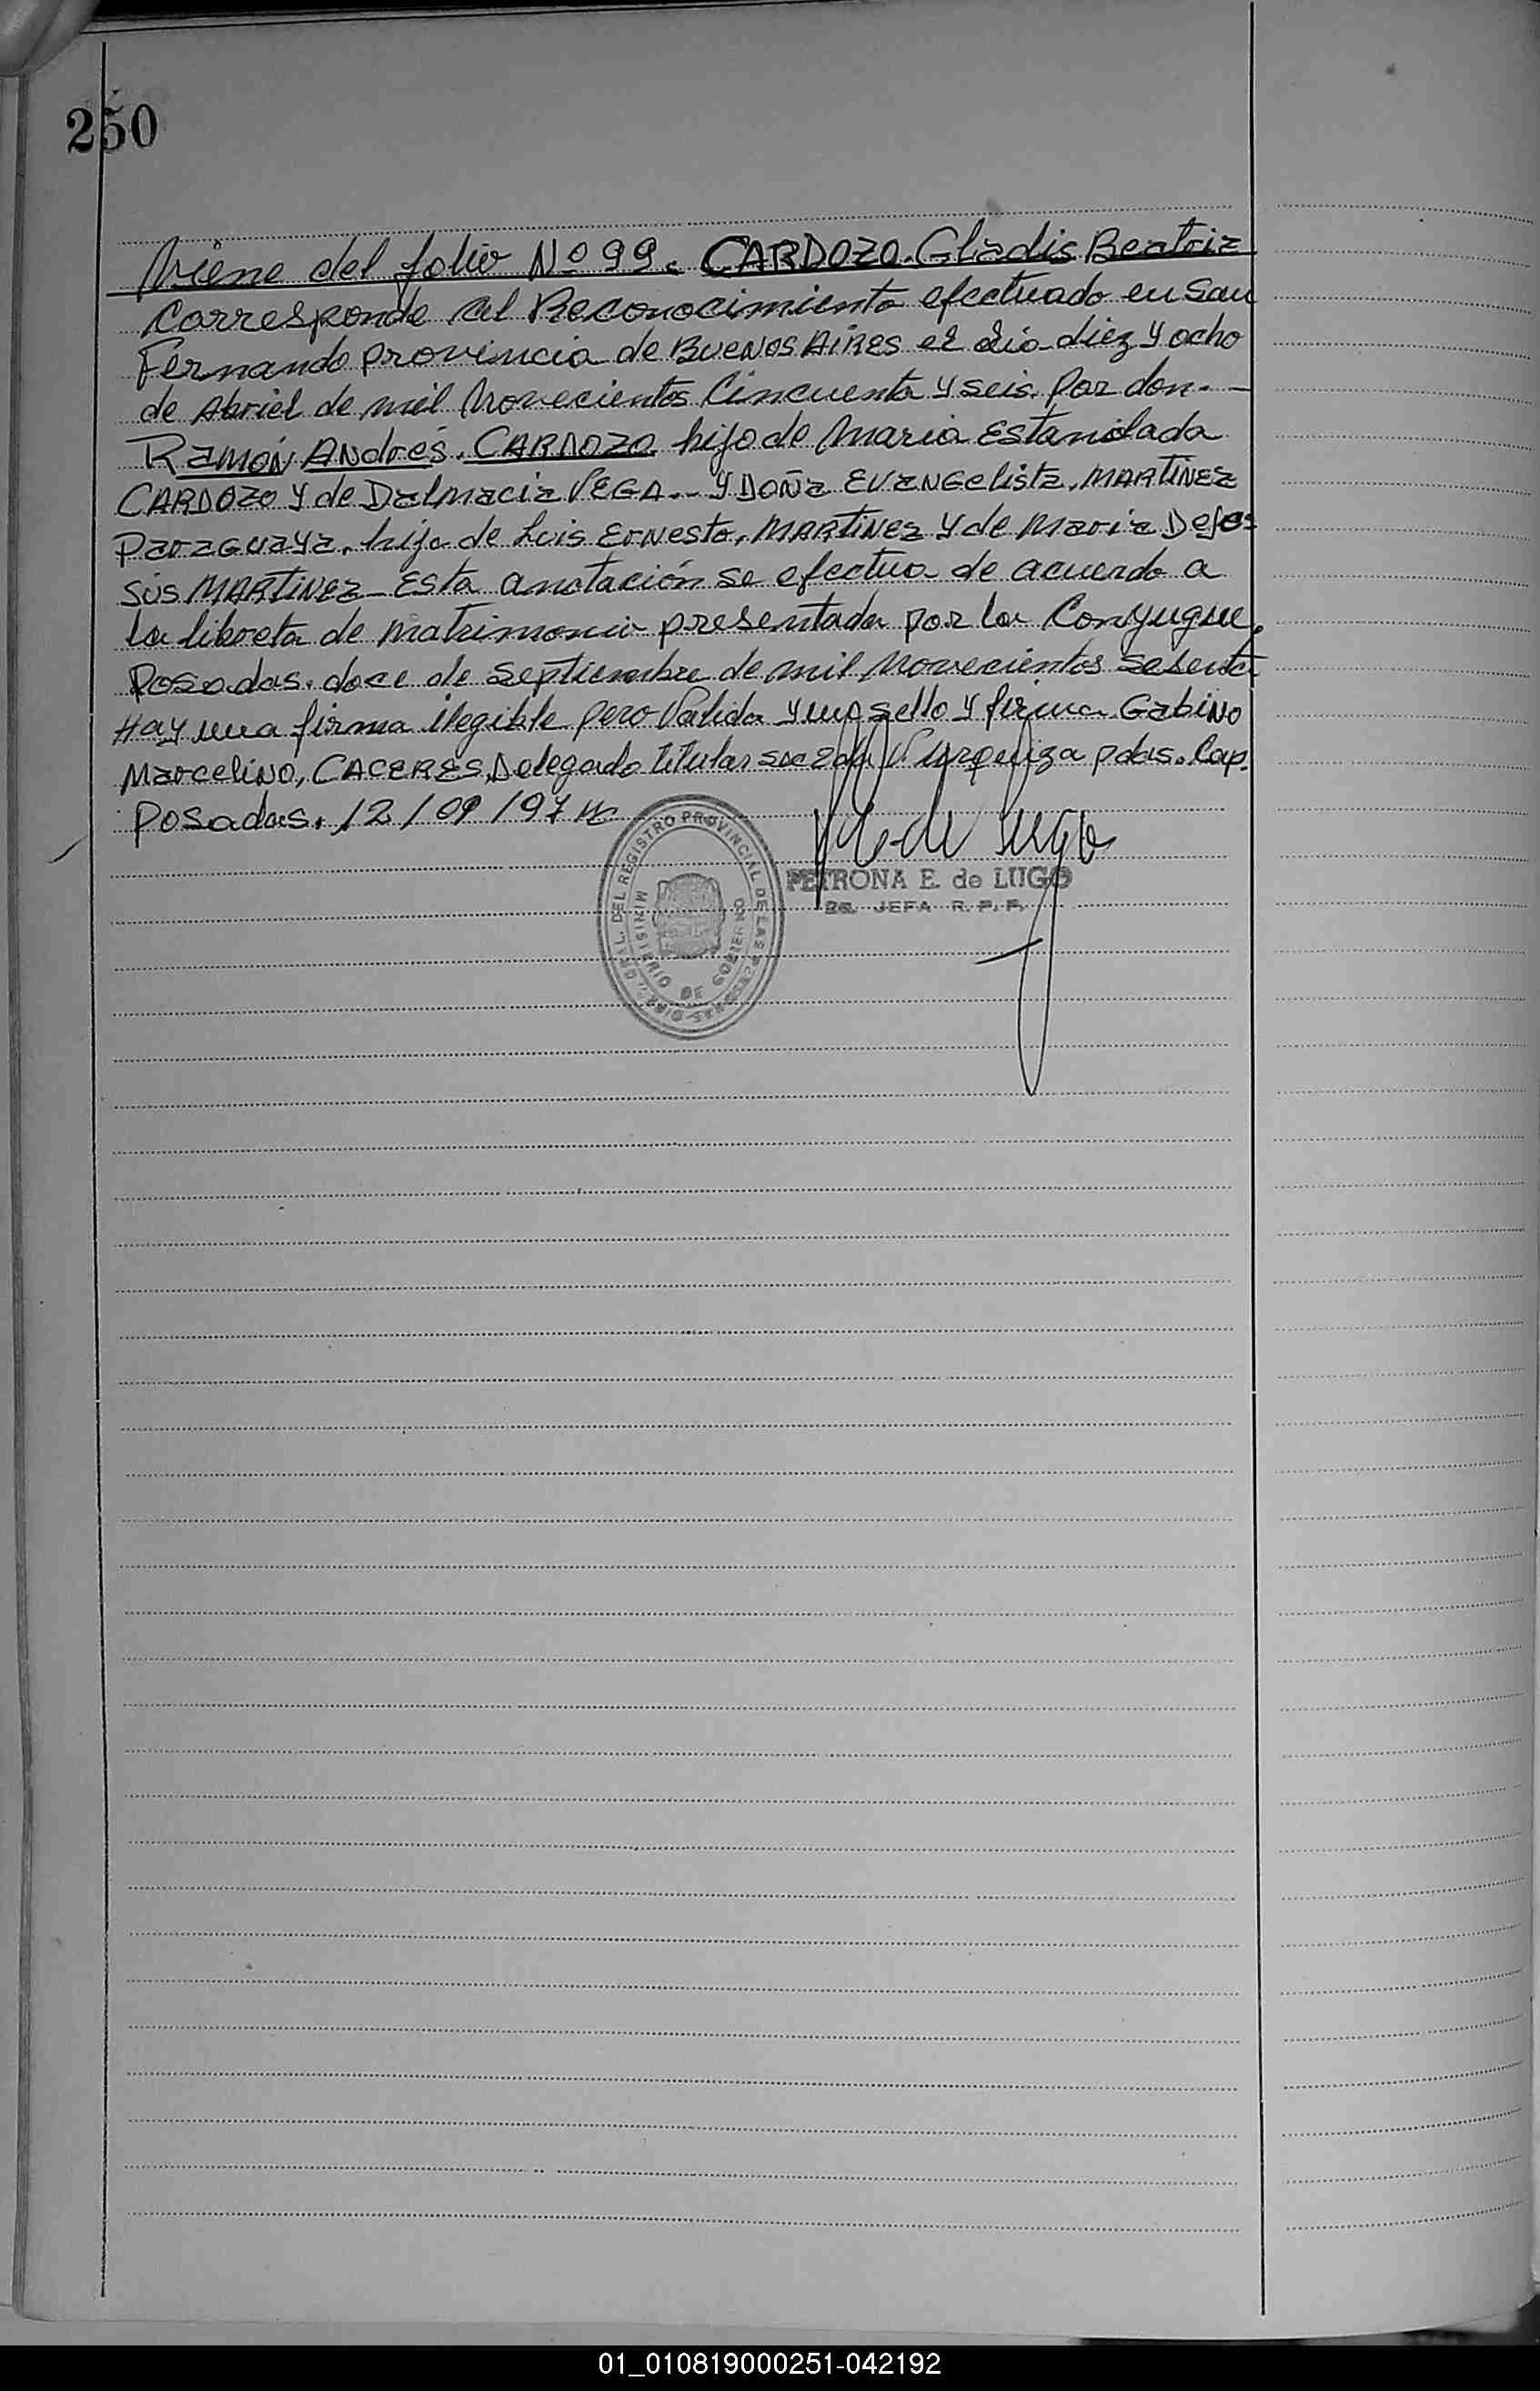 250
Viene del folio Nº 99. CARDOZO. Gladis Beatriz
Corresponde al Reconocimiento efectuado en San
Fernando provincia de BUENOS AIRES el dia diez y ocho
de Abriel de mil Novecientos Cincuenta y seis. Por don.-
Ramón Andrés. CARDOZO. hijo de Maria Estanislada
CARDOZO y de Dalmacia VEGA.- y DOÑa EVANGelista. MARTINEZ
Paraguaya. hija de Luis Ernesto, MARTINEZ y de Maria De Je=
sús MARTINEZ- Esta anotación se efectua de acuerdo a
la libreta de matrimonio presentada por la Conyugue.
Posadas. doce de septiembre de mil Novecientos sesenta
Hay una firma ilegible pero Valida y un sello y firma Gabino
Marcelino, CACERES, Delegado titular V. Urquiza pdas. Cap.
Posadas. 12/09/97
PETRONA E. de LUGO
2a. JEFA R. P. P.
DIR. GRAL. DEL REGISTRO PROVINCIAL DE LAS PERSONAS
MINISTERIO DE GOBIERNO
01_010819000251-042192